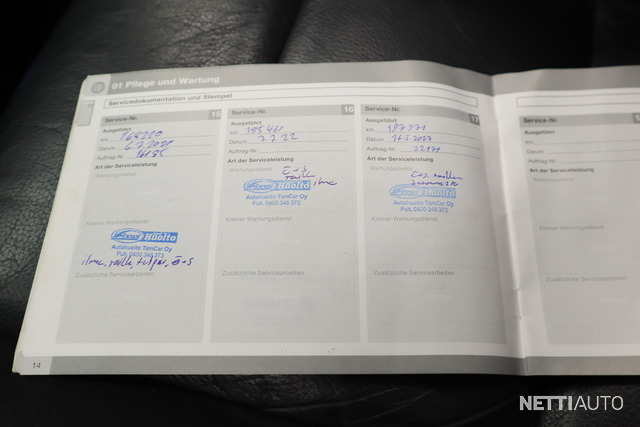 01 Pflege und Wartung
Servicedokumentation und Stempel
Service-Nr. 15
Ausgeführt
km
Datum
Auftrag-Nr.
Art der Serviceleistung
Wartungsdienst
Kleiner Wartungsdienst
Fixus Huolto
Autohuolto TamCar Oy
Puh. 0400 346 373
Zusätzliche Servicearbeiten
Service-Nr. 16
Ausgeführt
km 185 461
Datum 7.7.22
Auftrag-Nr.
Art der Serviceleistung
Wartungsdienst
Fixus Huolto
Autohuolto TamCar Oy
Puh. 0400 346 373
Kleiner Wartungsdienst
Zusätzliche Servicearbeiten
Service-Nr. 17
Ausgeführt
km
Datum
Auftrag-Nr.
Art der Serviceleistung
Wartungsdienst
Fixus Huolto
Autohuolto TamCar Oy
Puh. 0400 346 373
Kleiner Wartungsdienst
Zusätzliche Servicearbeiten
Service-Nr.
Ausgeführt
km
Datum
Auftrag-Nr.
Art der Serviceleistung
Wartungsdienst
Kleiner Wartungsdienst
Zusätzliche Servicearbeiten
14
NETTIAUTO